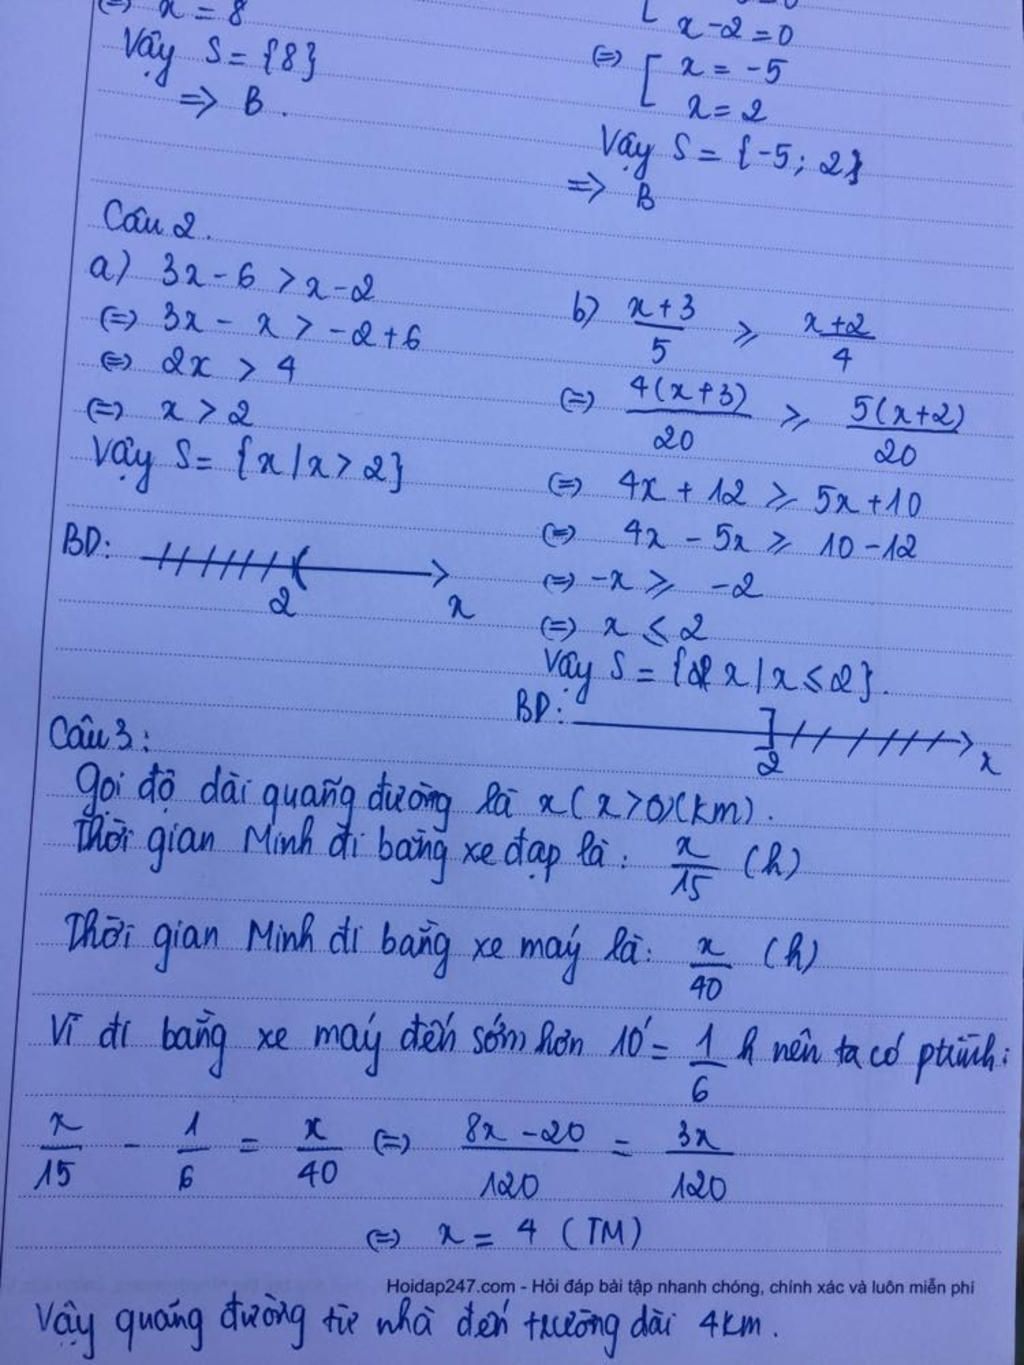 (=) x = 8
Vậy S = {8}
=> B.
x-2=0
(=) [ x = -5
x = 2
Vậy S = {-5; 2}
=> B
Câu 2.
a) 3x - 6 > x - 2
(=) 3x - x > -2 + 6
(=) 2x > 4
(=) x > 2
Vậy S = {x | x > 2}
BD:
2 x
b) x+3/5 ≥ x+2/4
(=) 4(x+3)/20 ≥ 5(x+2)/20
(=) 4x + 12 ≥ 5x + 10
(=) 4x - 5x ≥ 10 - 12
(=) -x ≥ -2
(=) x ≤ 2
Vậy S = {x | x ≤ 2}.
BD:
2 x
Câu 3:
Gọi độ dài quãng đường là x (x>0)(km).
Thời gian Minh đi bằng xe đạp là: x/15 (h)
Thời gian Minh đi bằng xe máy là: x/40 (h)
Vì đi bằng xe máy đến sớm hơn 10' = 1/6 h nên ta có ptrình:
x/15 - 1/6 = x/40 (=) 8x - 20/120 = 3x/120
(=) x = 4 (TM)
Hoidap247.com - Hỏi đáp bài tập nhanh chóng, chính xác và luôn miễn phí
Vậy quãng đường từ nhà đến trường dài 4km.